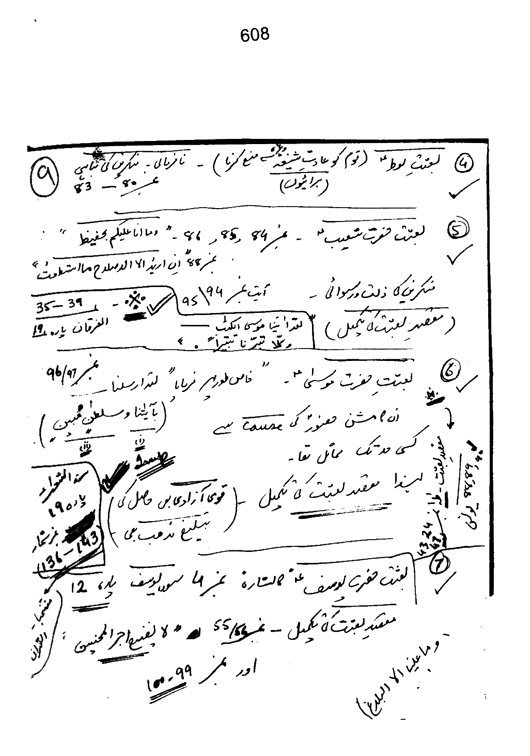 608
۹
④ بعثتِ لوطؑ (قوم کو عادتِ شنیعہ سے منع کرنا) - نافرمانی - منکرین کی تباہی
(برائیوں) نمبر 80 — 83
⑤ بعثت حضرت شعیبؑ - نمبر 84، 85، 86 - "وما انا علیکم بحفیظ"
نمبر 88 "ان ارید الا الاصلاح ما استطعت"
منکرین کی ذلت و رسوائی - آیت نمبر 94\95
(مقصدِ بعثت کی تکمیل)
35 — 39
الفرقان پارہ 19
"لقد اٰتینا موسی الکتٰب —
وکلا تبّرنا تتبیراً"
⑥ بعثت حضرت موسیٰؑ - "خاص طور پر فرمایا" لقد ارسلنا نمبر 96/97
(بآیٰتنا و سلطٰن مبین)
ان کا مشن حضورؐ کی Cause سے
کسی حد تک مماثل تھا -
لہٰذا مقصد بعثت کی تکمیل - (قومی آزادی بھی حاصل کی
تبلیغ مذہب بھی -)
پارہ 19
نمبر شمار
(136 — 143)
مقصدِ بعثت
84,85
یونس
43,24
47
⑦ بعثت حضرت یوسفؑ کا اشارہ نمبر 4 سورہ یوسف پارہ 12
مقصدِ بعثت کی تکمیل - نمبر 55/56 "لا نضیع اجر المحسنین"
اور نمبر 99-100
(وما علینا الا البلاغ)